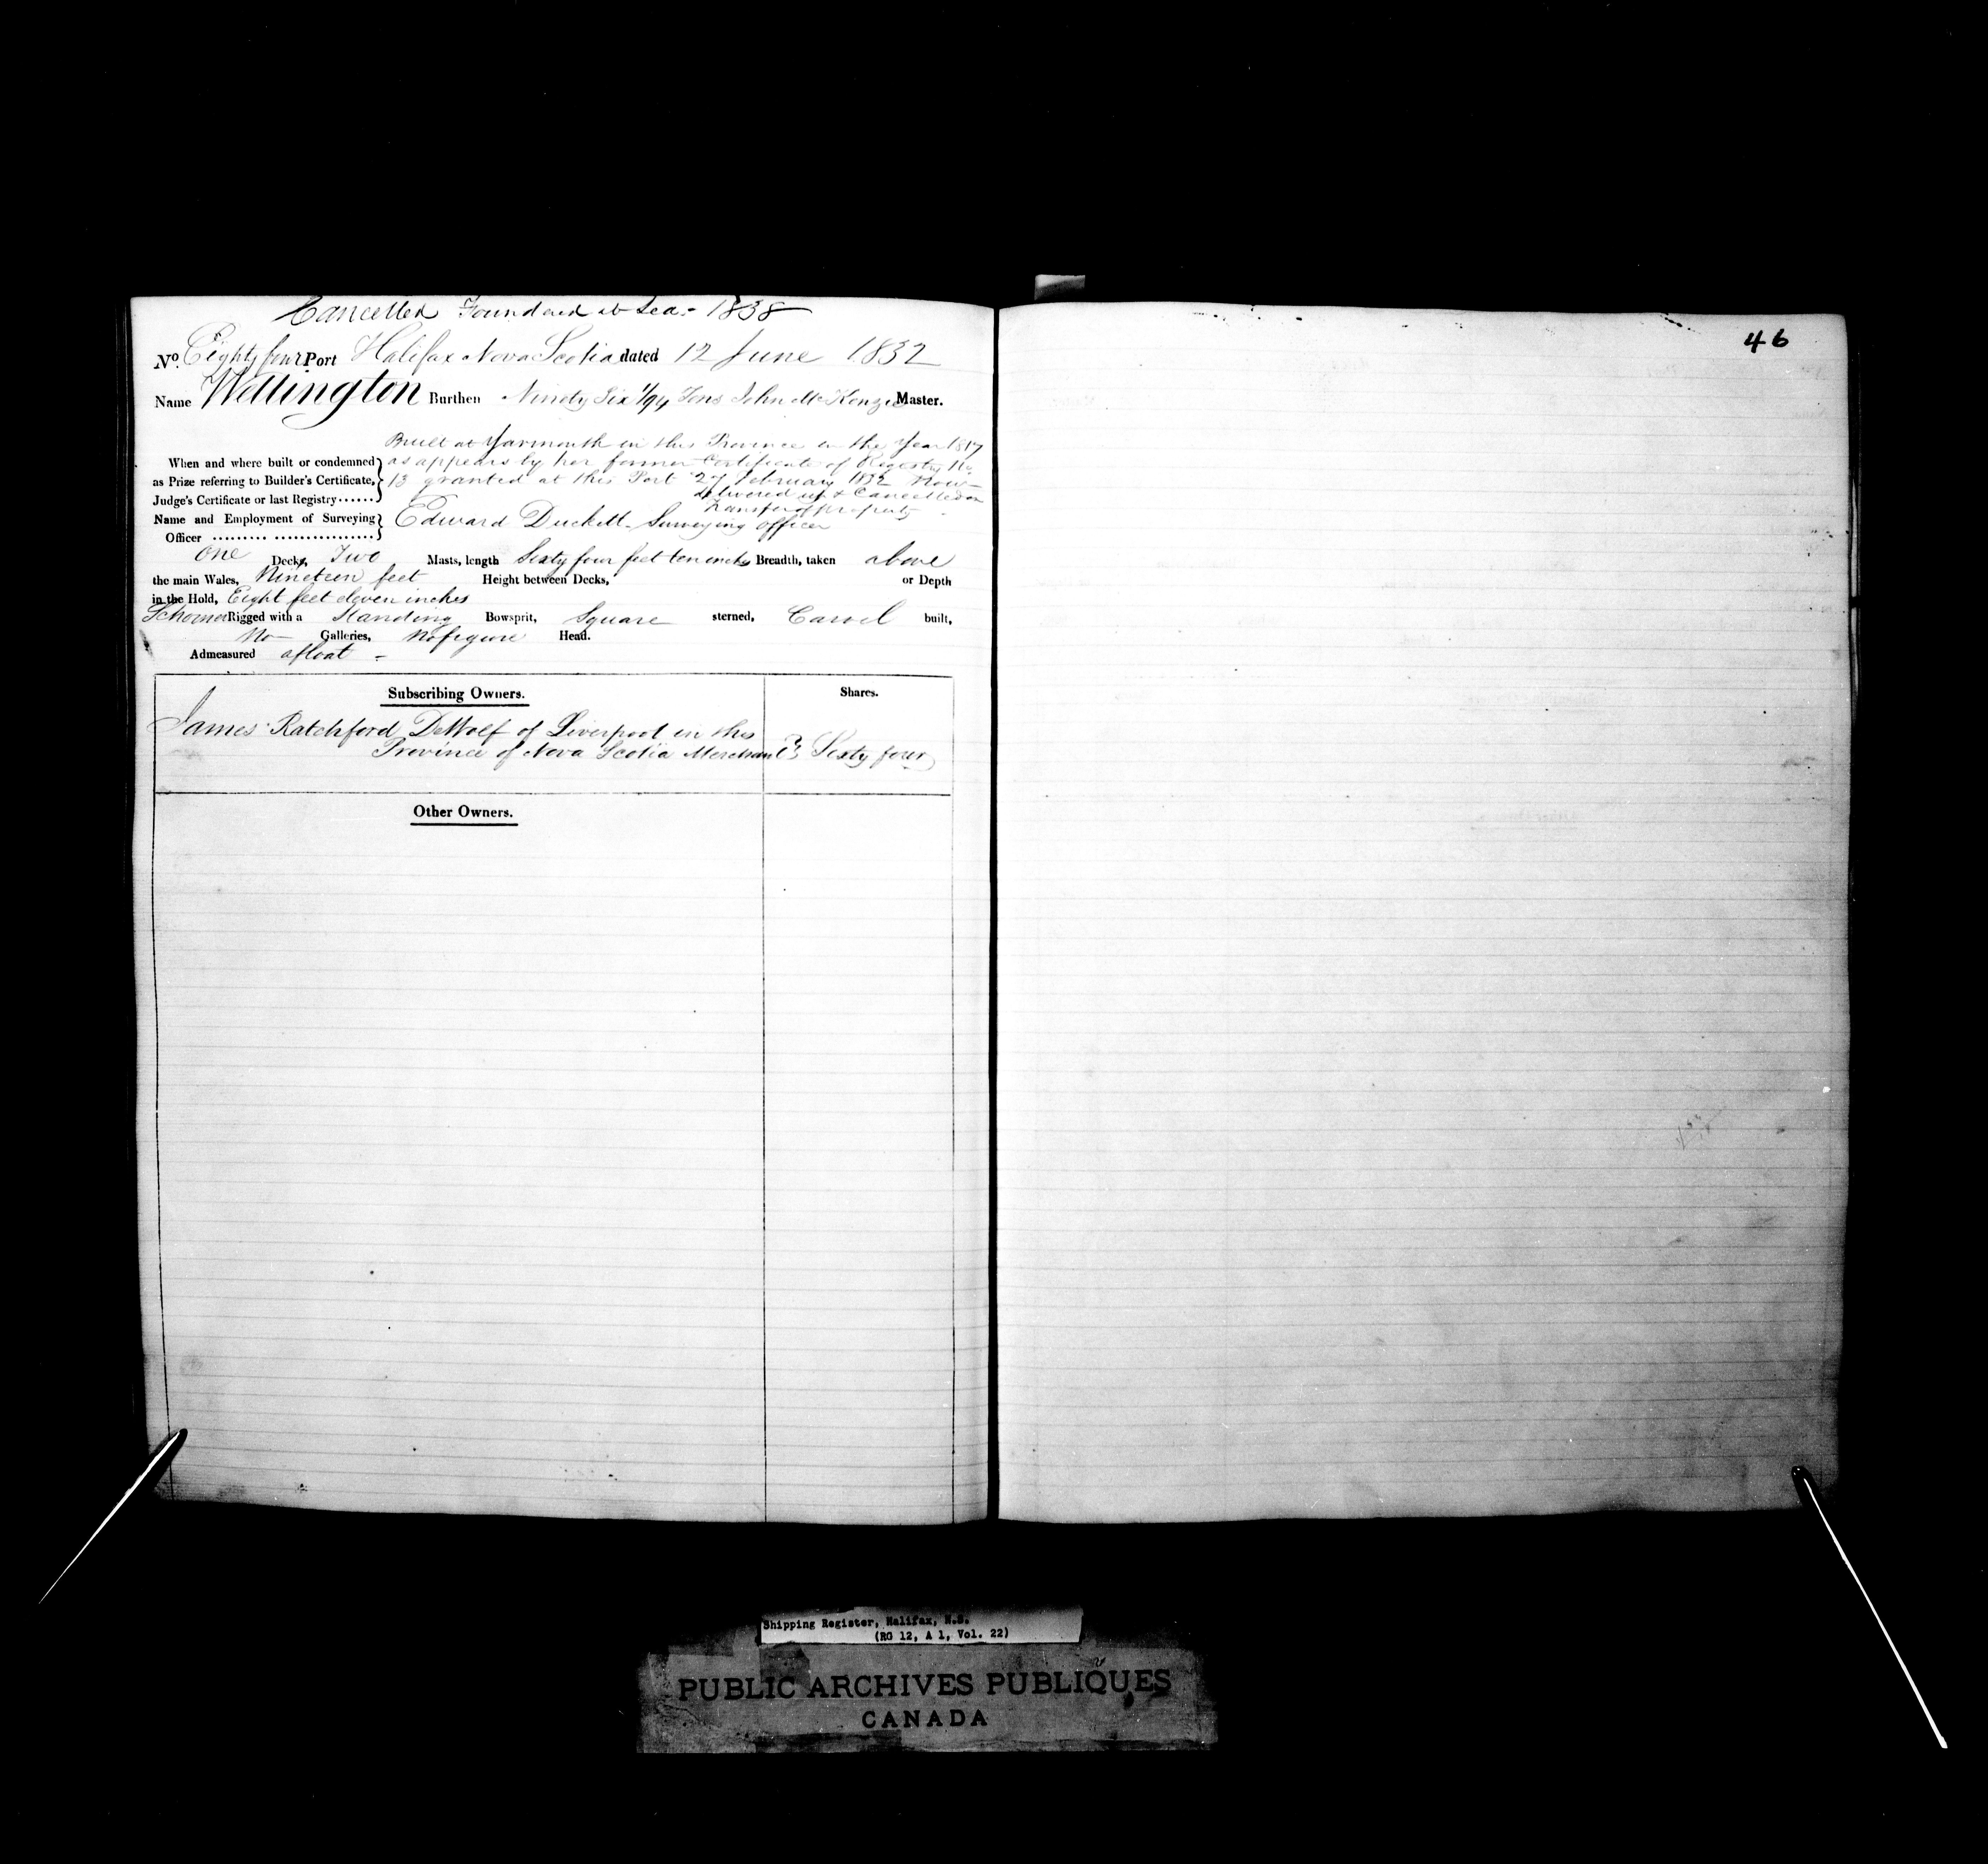 Cancelled Foundered at Sea - 1838
No. Eighty four Port Halifax Nova Scotia dated 12 June 1832
Name Wellington Burthen Ninety Six 1/94 Tons John McKenzie Master.
Built at Yarmouth in this Province in the Year 1817
When and where built or condemned as appears by her former Certificate of Registry No.
as Prize referring to Builder's Certificate, 13 granted at this Port 27 February 1832 Now
Judge's Certificate or last Registry...... delivered up & Cancelled on
Transfer of property
Name and Employment of Surveying Edward Duckett Surveying officer
Officer ......... ................
one Decks, Two Masts, length Sixty four feet ten inches Breadth, taken above
the main Wales, Nineteen feet Height between Decks, or Depth
in the Hold, Eight feet eleven inches
Schooner Rigged with a Standing Bowsprit, Square sterned, Carvel built,
No Galleries, No figure Head.
Admeasured afloat -
Subscribing Owners. Shares.
James Ratchford DeWolf of Liverpool in this
Province of Nova Scotia Merchant } Sixty four
Other Owners.
46
Shipping Register, Halifax, N.S.
(RG 12, A 1, Vol. 22)
PUBLIC ARCHIVES PUBLIQUES
CANADA